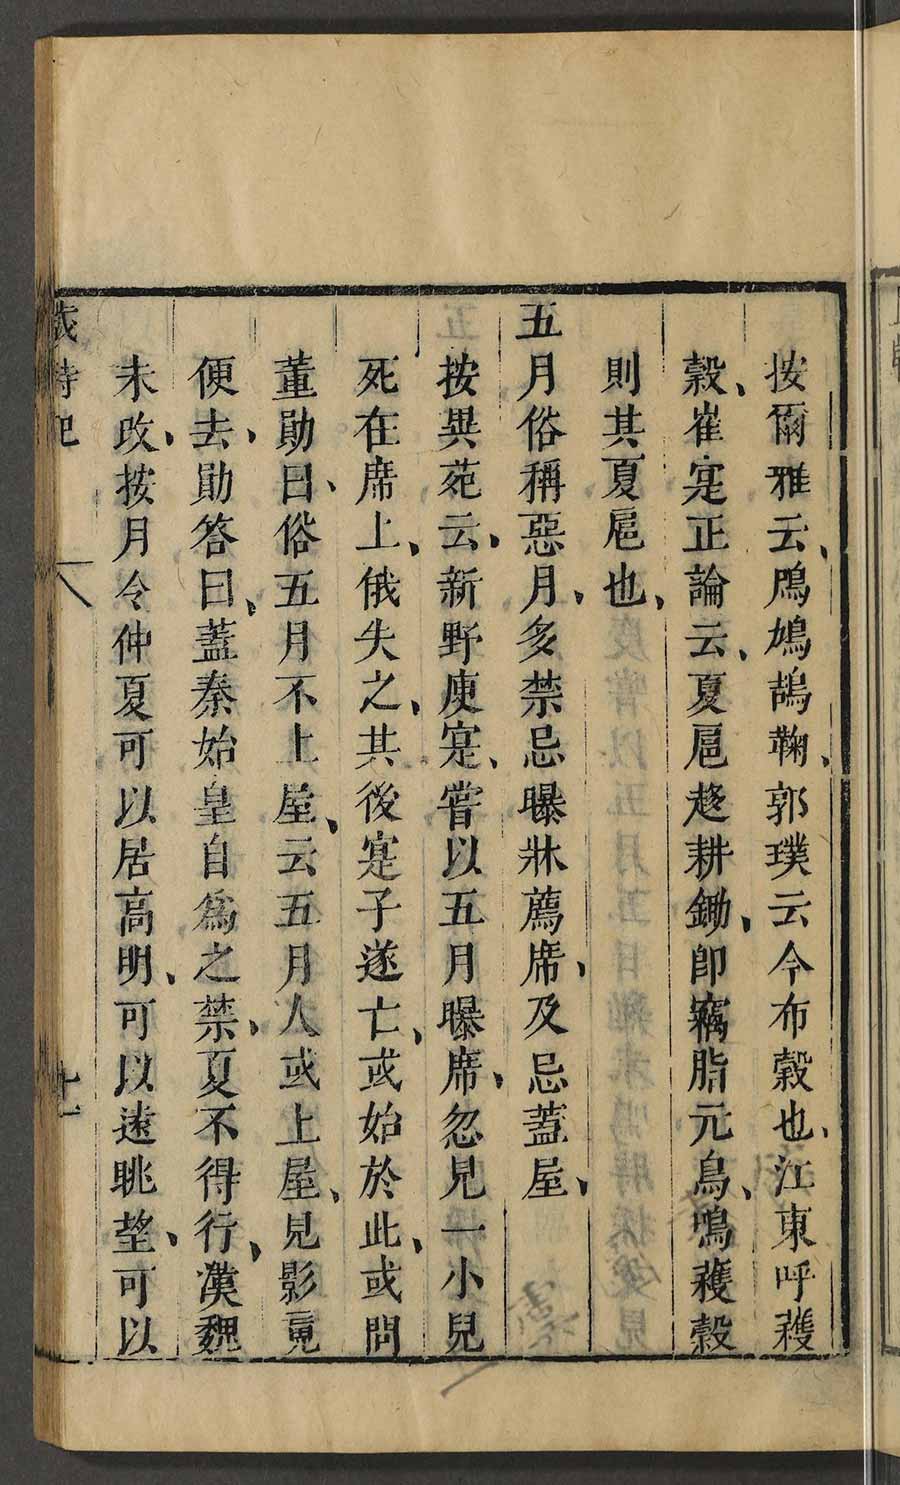 按爾雅云、鳲鳩鴶鞠、郭璞云今布穀也、江東呼穫
穀、崔寔正論云、夏扈趍耕鋤、卽竊脂元鳥、鳴穫穀
則其夏扈也、
五月俗稱惡月、多禁忌曝牀薦席、及忌蓋屋、
按異苑云、新野庾寔、嘗以五月曝席、忽見一小兒
死在席上、俄失之、其後寔子遂亡、或始於此、或問
董勛曰、俗五月不上屋、云五月人或上屋、見影䰟
便去、勛答曰、蓋秦始皇自爲之禁、夏不得行、漢魏
未改、按月令仲夏可以居高明、可以遠眺望、可以
歲時記
十一